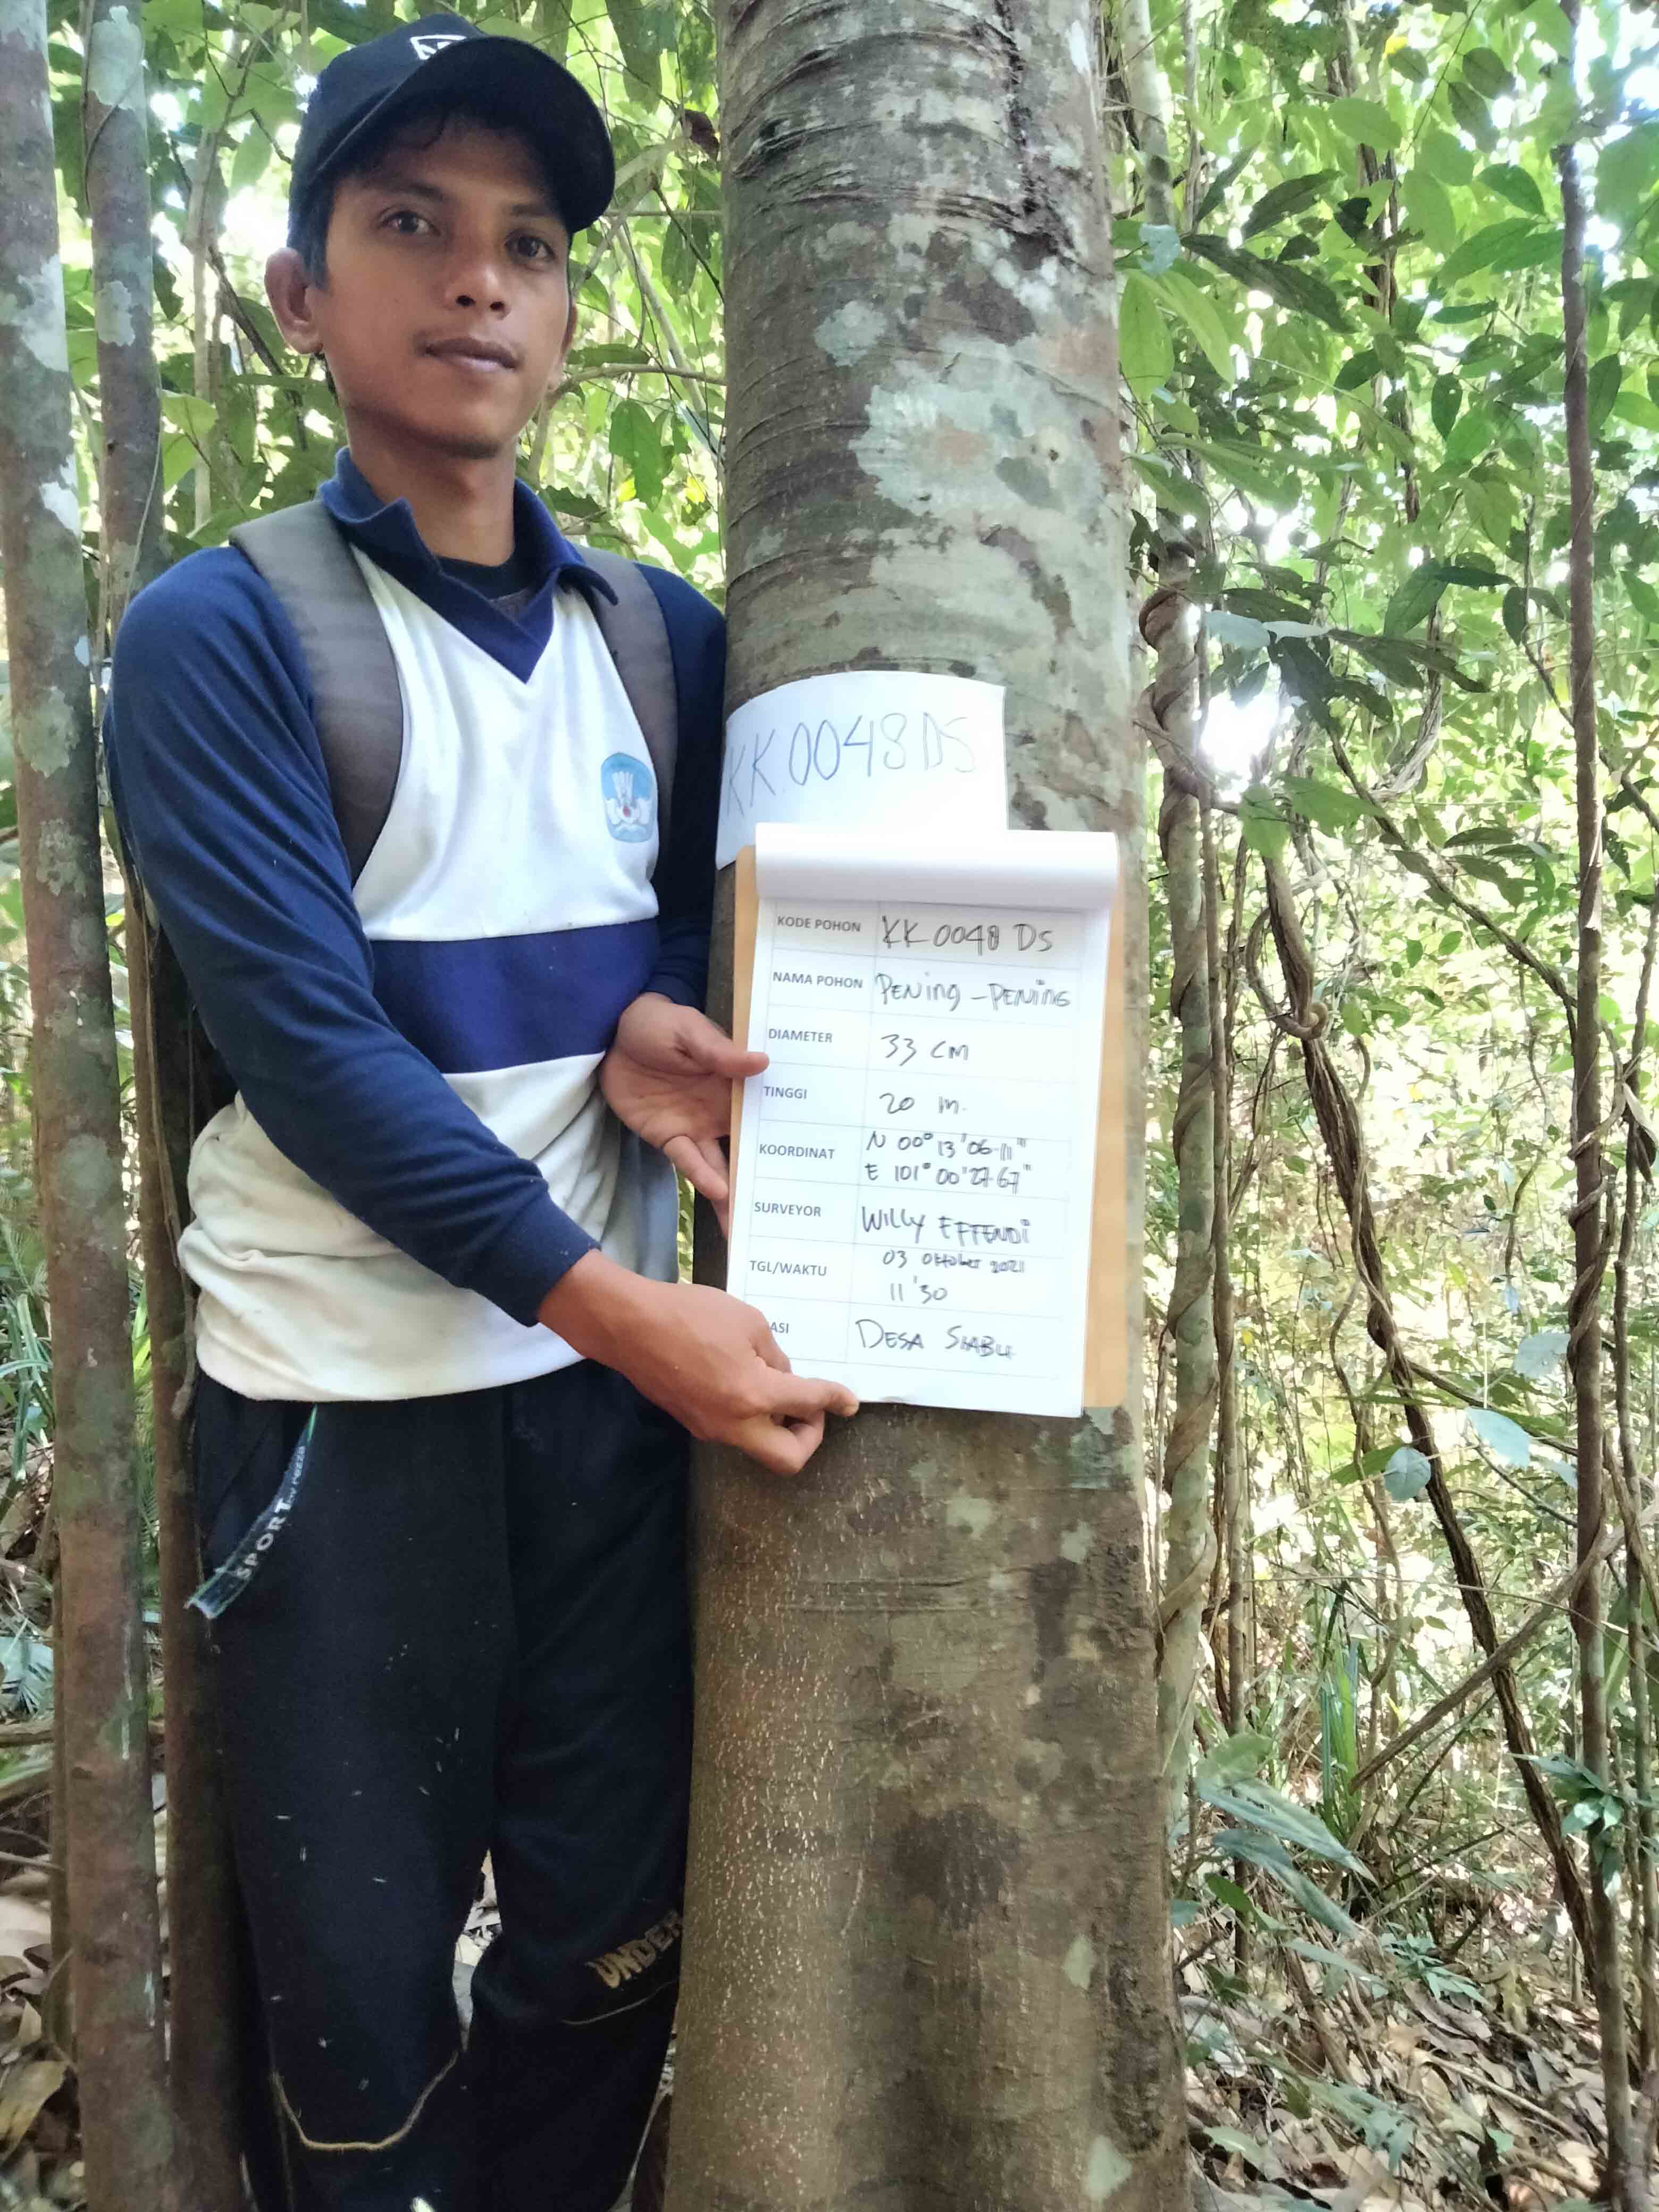 KK.0048 DS
KODE POHON KK 0048 DS
NAMA POHON PENiNg - PENiNG
DIAMETER 33 CM
TINGGI 20 m.
KOORDINAT N 00° 13' 06.11"
E 101° 00' 27.67"
SURVEYOR WILLY EFFENDi
TGL/WAKTU 03 Oktober 2021
11'30
ASI DESA SIABU
SPORT
UNDER